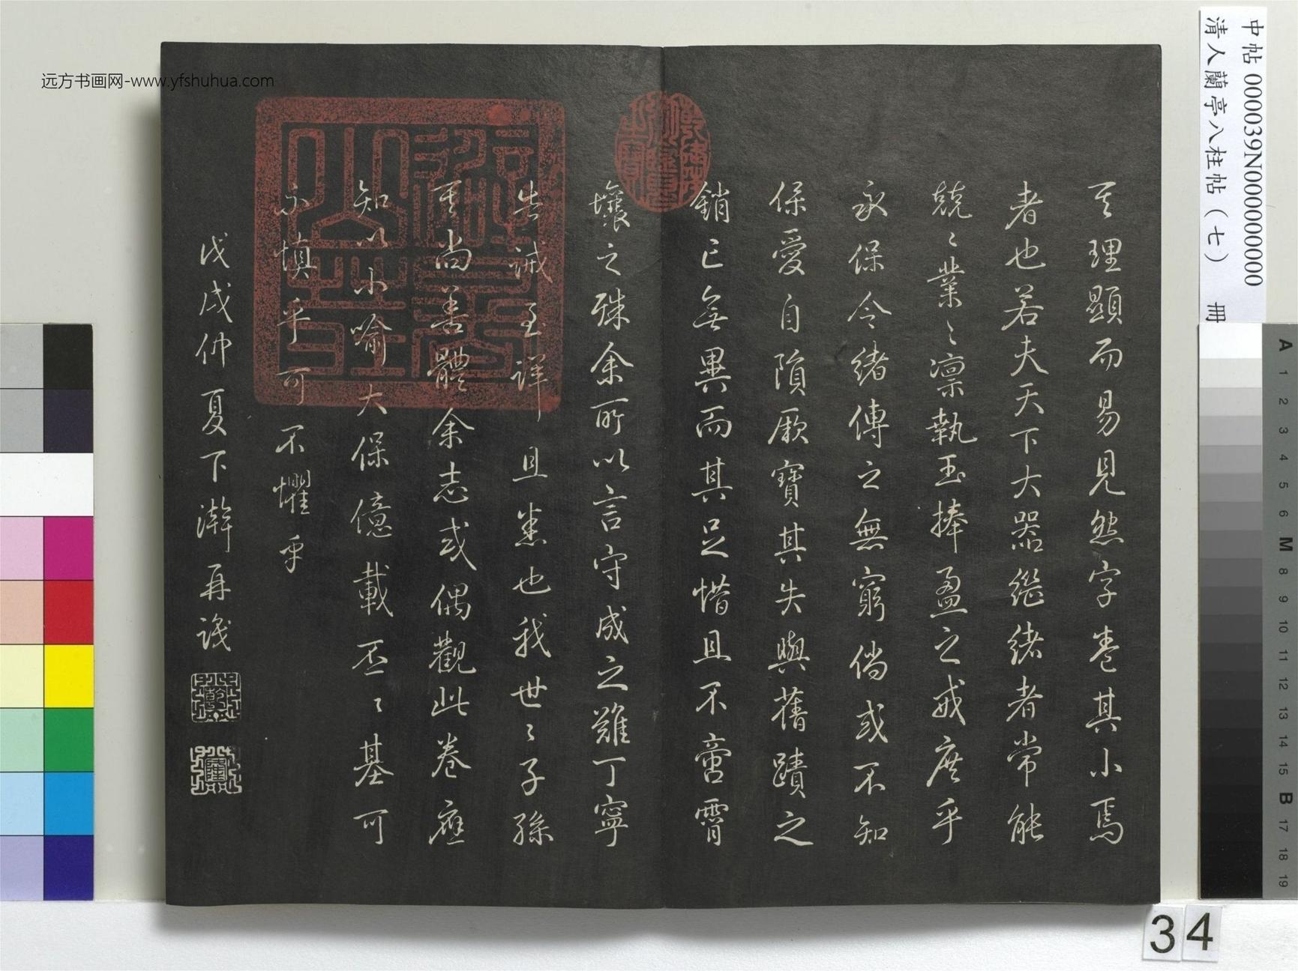 其理顯而易見然字卷其小焉
者也若夫天下大器繼緒者常能
兢〻業〻凛執玉捧盈之戒庶乎
永保令緒傳之無窮倘或不知
保愛自隕厥寶其失與舊蹟之
銷亡無異而其足惜且不啻霄
壤之殊余所以言守成之難丁寧
告誡至詳且悉也我世〻子孫
其尚善體余志或偶觀此卷應
知以小喻大保億載丕〻基可
不慎乎可不懼乎
戊戌仲夏下澣再識
远方书画网-www.yfshuhua.com
中帖 000039N000000000
清人蘭亭八柱帖(七) 冊
34
A 1 2 3 4 5 6 M 8 9 10 11 12 13 14 15 B 17 18 19